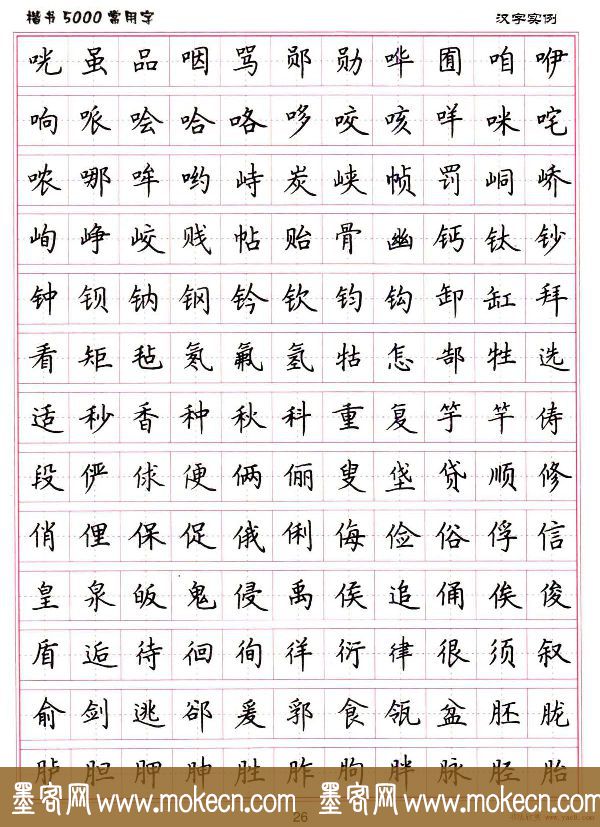 楷书5000常用字 汉字实例
咣虽品咽骂郧勋哗囿咱咿
响哌哙哈咯哆咬咳咩咪咤
哝哪哞哟峙炭峡帧罚峒峤
峋峥峧贱帖贻骨幽钙钛钞
钟钡钠钢钤钦钧钩卸缸拜
看矩毡氡氟氢牯怎郜牲选
适秒香种秋科重复竽竿俦
段俨俅便俩俪叟垡贷顺修
俏俚保促俄俐侮俭俗俘信
皇泉皈鬼侵禹侯追俑俟俊
盾逅待徊徇徉衍律很须叙
俞剑逃郤爰郛食瓴盆胚胧
胪胆胛胂胜胙朐胖脉胫胎
墨客网 www.mokecn.com 墨客网 www.mokecn.com
26